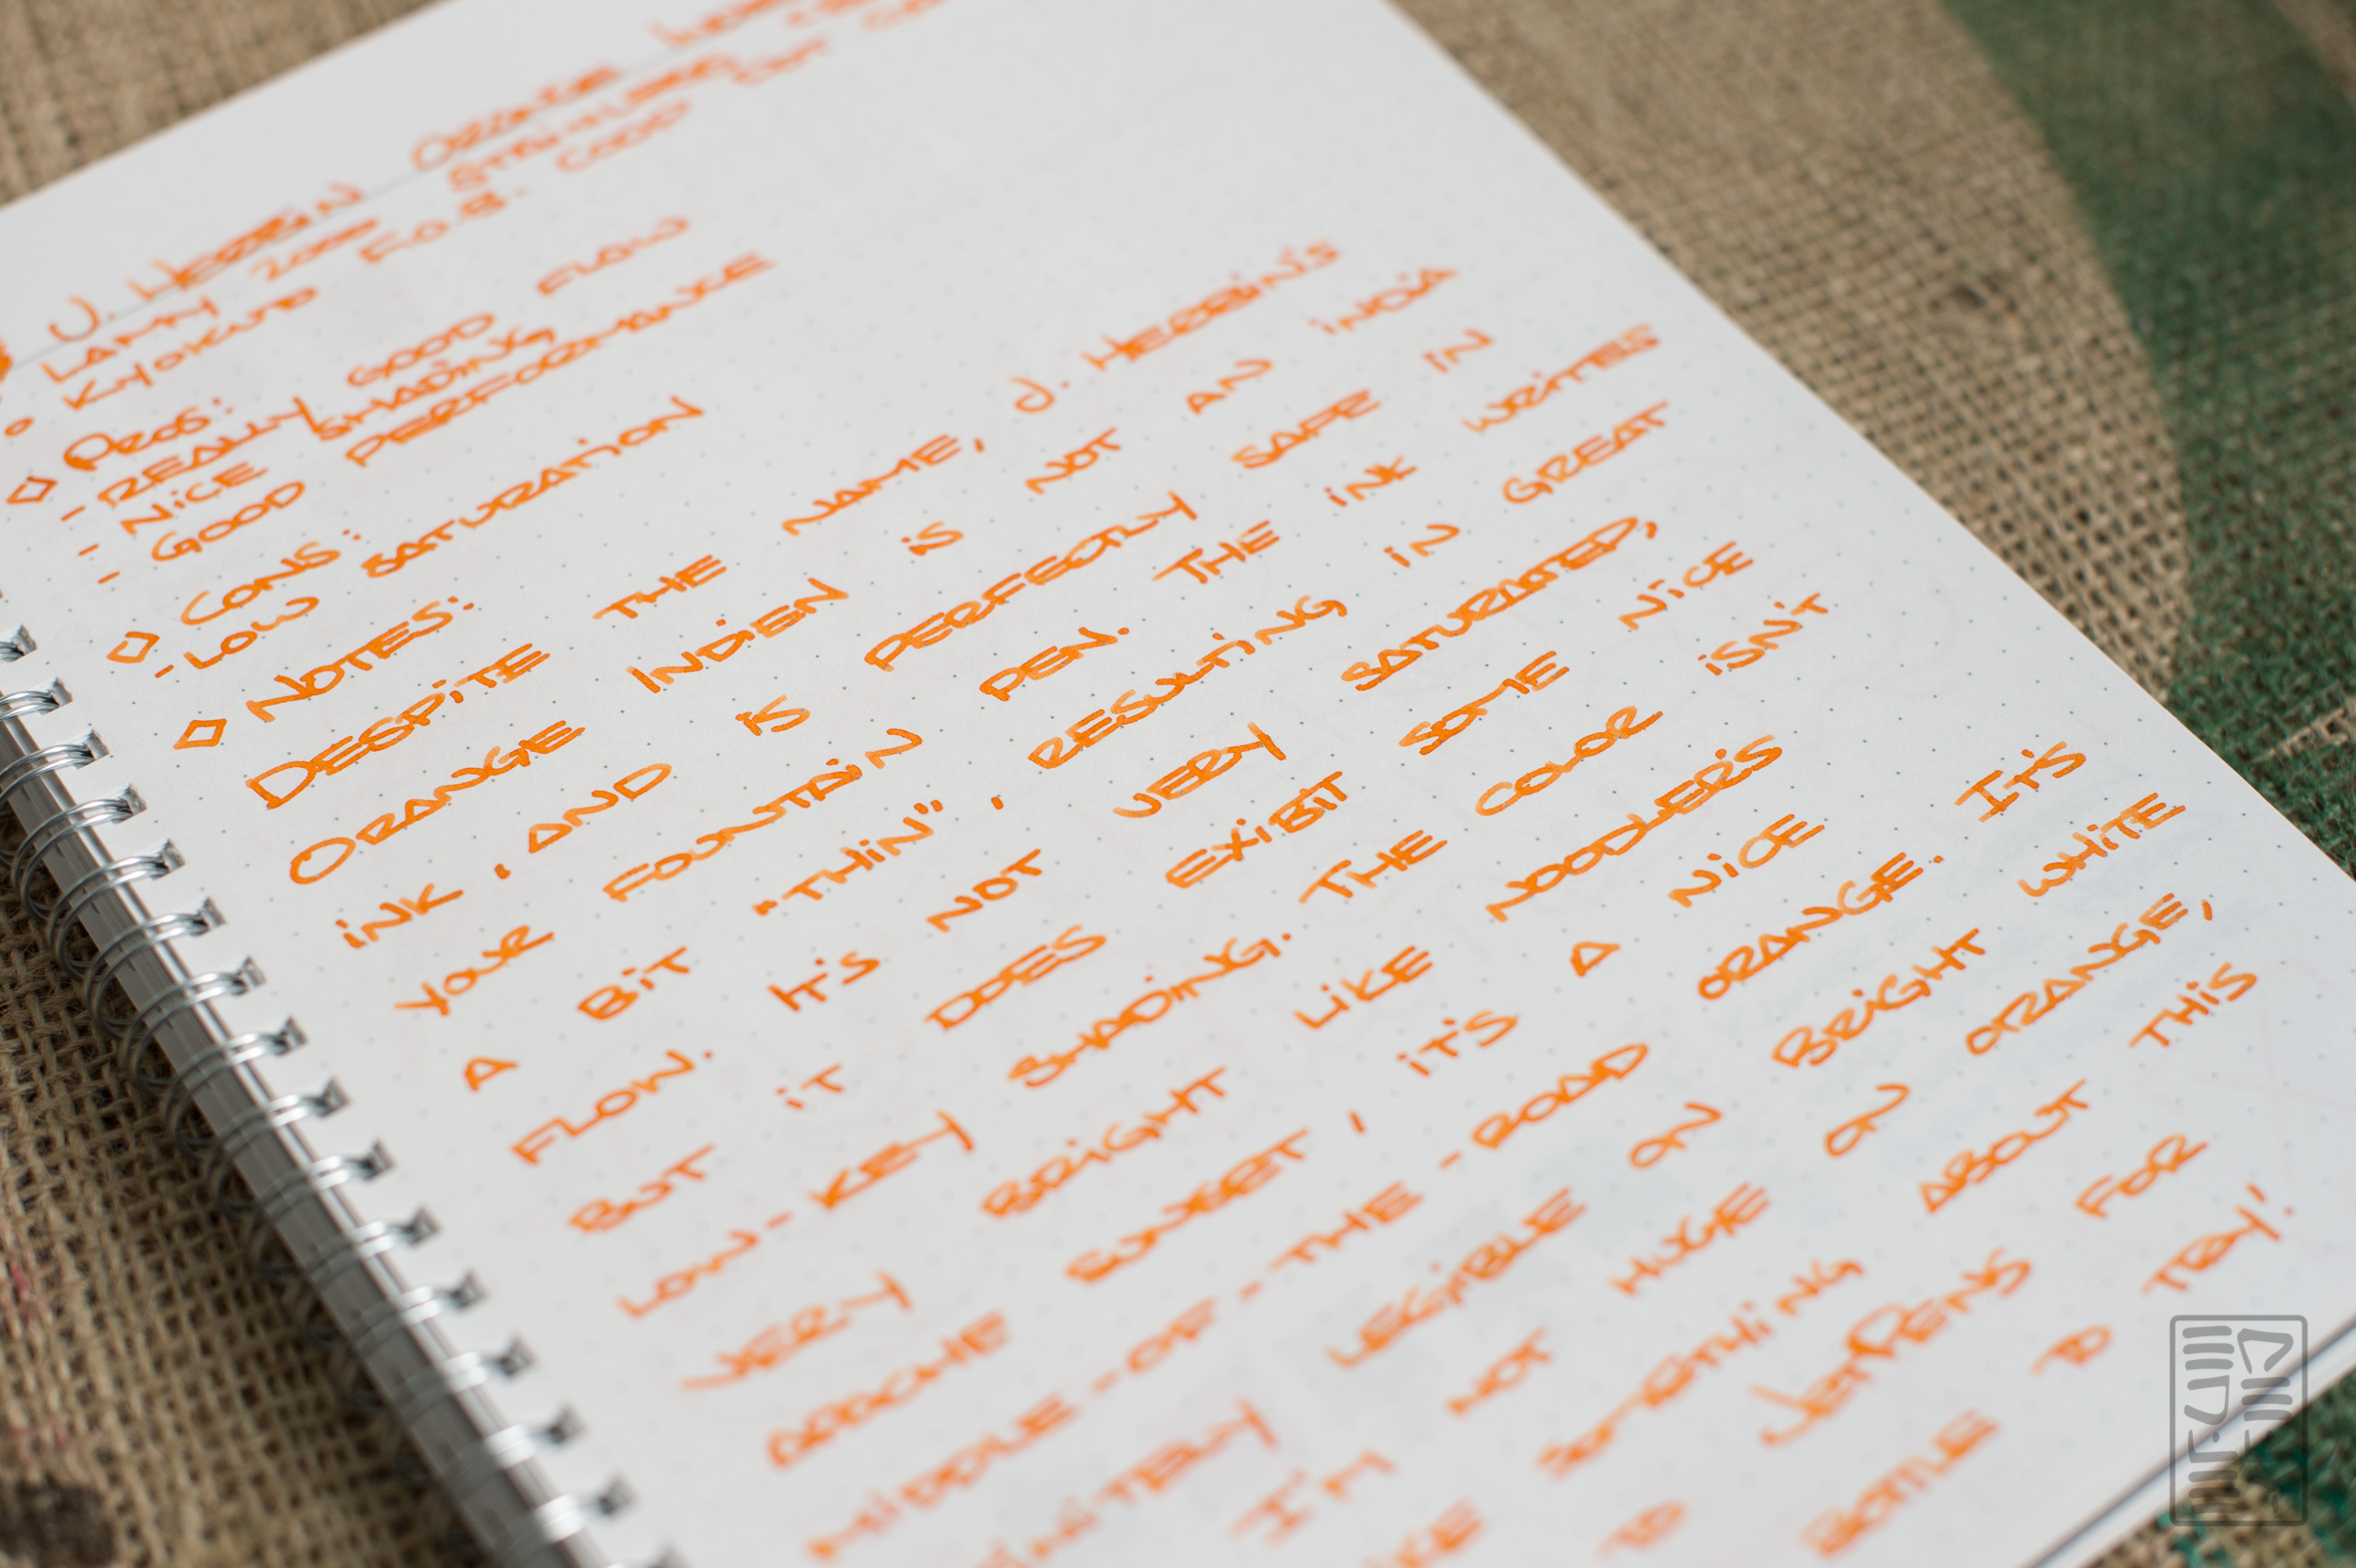 J. HERBIN ORANGE
LAMY 2000
KYOKUTO F.O.B. COOP
PROS:
- REALLY GOOD FLOW
- NICE SHADING
- GOOD PERFORMANCE
CONS:
- LOW SATURATION
NOTES:
DESPITE THE NAME, J. HERBIN'S
ORANGE INDIEN IS NOT AN INDIA
INK, AND IS PERFECTLY SAFE IN
YOUR FOUNTAIN PEN. THE INK WRITES
A BIT "THIN", RESULTING IN GREAT
FLOW. IT'S NOT VERY SATURATED,
BUT IT DOES EXIBIT SOME NICE
LOW-KEY SHADING. THE COLOR ISN'T
VERY BRIGHT LIKE NOODLER'S
APACHE SUNSET, IT'S A NICE
MIDDLE-OF-THE-ROAD ORANGE. IT'S
LEGIBLE ON BRIGHT WHITE
NOT HUGE ON ORANGE,
SOMETHING ABOUT THIS
TO JETPENS FOR
BOTTLE TO TRY.